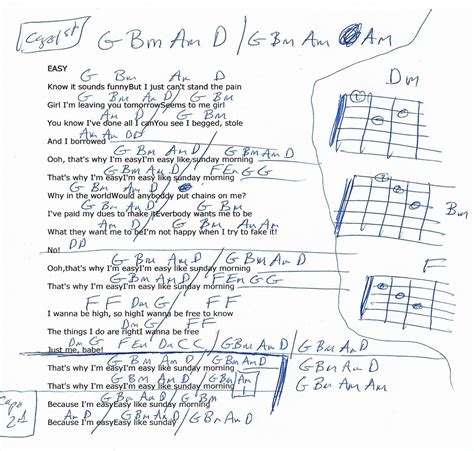 Capo 1st G Bm Am D / G Bm Am Am
EASY
G Bm Am D
Know it sounds funnyBut I just can't stand the pain
G Bm Am D / G Bm
Girl I'm leaving you tomorrowSeems to me girl
Am D / G Bm
You know I've done all I canYou see I begged, stole
Am Am DD
And I borrowed
G Bm Am D / G Bm Am D
Ooh, that's why I'm easyI'm easy like sunday morning
G Bm Am D / F Em G G
That's why I'm easyI'm easy like sunday morning
G Bm Am D
Why in the worldWould anybody put chains on me?
G Bm Am D / G Bm
I've paid my dues to make itEverbody wants me to be
Am D / G Bm Am Am
What they want me to beI'm not happy when I try to fake it!
DD
No!
G Bm Am D / G Bm Am D
Ooh,that's why I'm easyI'm easy like sunday morning
G Bm Am D / F Em G G
That's why I'm easyI'm easy like sunday morning
F F Dm G / F F
I wanna be high, so highI wanna be free to know
Dm G / F F
The things I do are rightI wanna be free
Dm G F Em Dm C C / G Bm Am D / G Bm Am D
Just me, babe!
G Bm Am D / G Bm Am D
That's why I'm easyI'm easy like sunday morning
G Bm Am D / G Bm Am
That's why I'm easyI'm easy like sunday morning
G Bm Am D / G Bm
Because I'm easyEasy like sunday morning
Am D / G Bm Am D / G Bm Am D
Because I'm easyEasy like sunday morning
G Bm Am D
G Bm Am Am
Capo 2nd
Dm
Bm
F